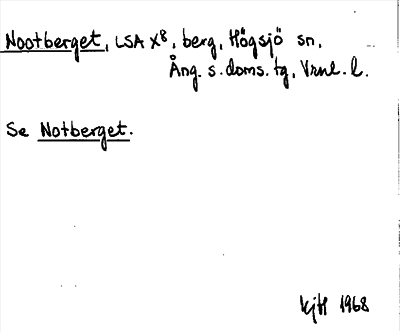 Nootberget, LSA X8, berg, Högsjö sn,
Ång. s. doms. tg, Vrnl. l.
Se Notberget.
KjH 1968